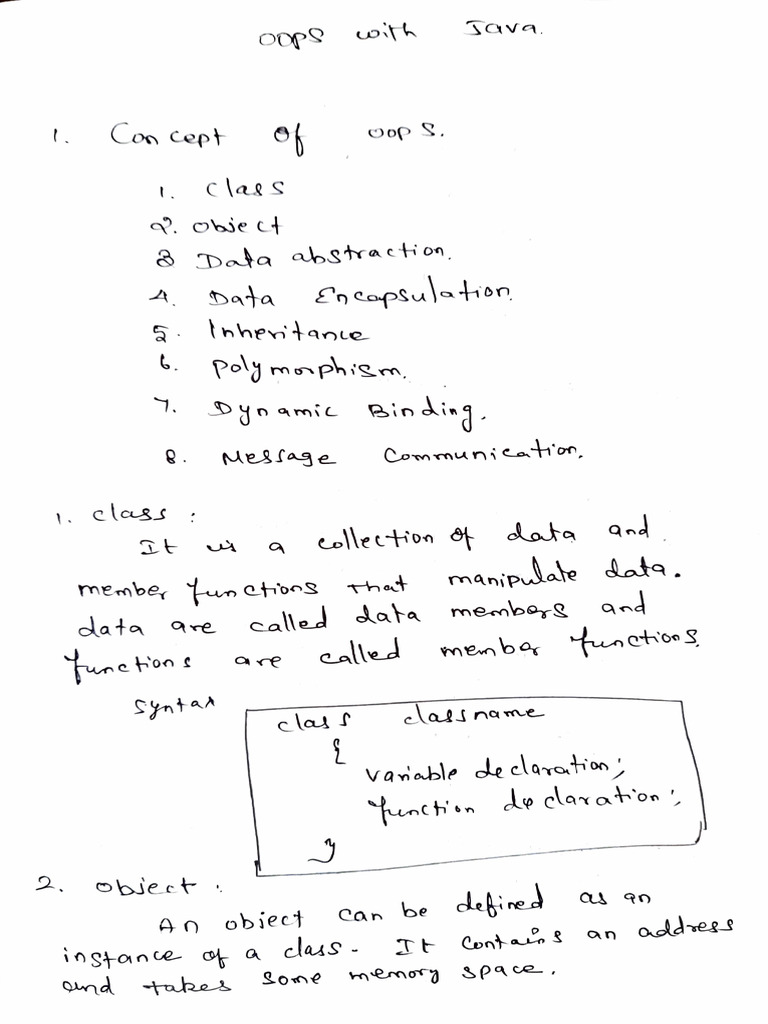 OOPS with Java.
1. Concept of OOPS.
1. Class
2. Object
3 Data abstraction.
4. Data Encapsulation.
5. Inheritance
6. Polymorphism.
7. Dynamic Binding.
8. Message Communication.
1. class :
It is a collection of data and
member functions that manipulate data.
data are called data members and
functions are called member functions.
Syntax
class classname
{
variable declaration;
function declaration;
}
2. Object :
An object can be defined as an
instance of a class. It contains an address
and takes some memory space.